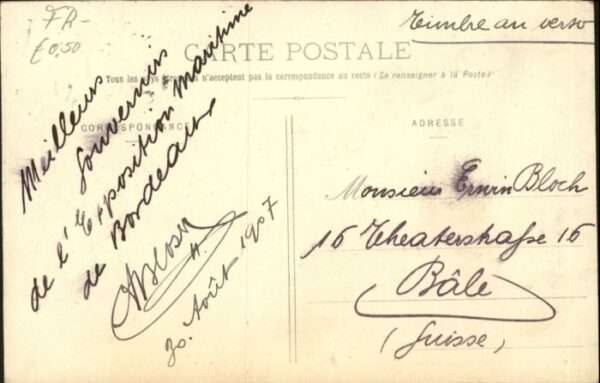 FR-
£0,50
Timbre au verso
CARTE POSTALE
Tous les pays étrangers n'acceptent pas la correspondance au recto (Se renseigner à la Poste)
CORRESPONDANCE
Meilleurs
souvenirs
de l'Exposition Maritime
de Bordeaux
30 Août 1907
ADRESSE
Monsieur Erwin Bloch
16 Theaterstraße 16
Bâle
(Suisse)